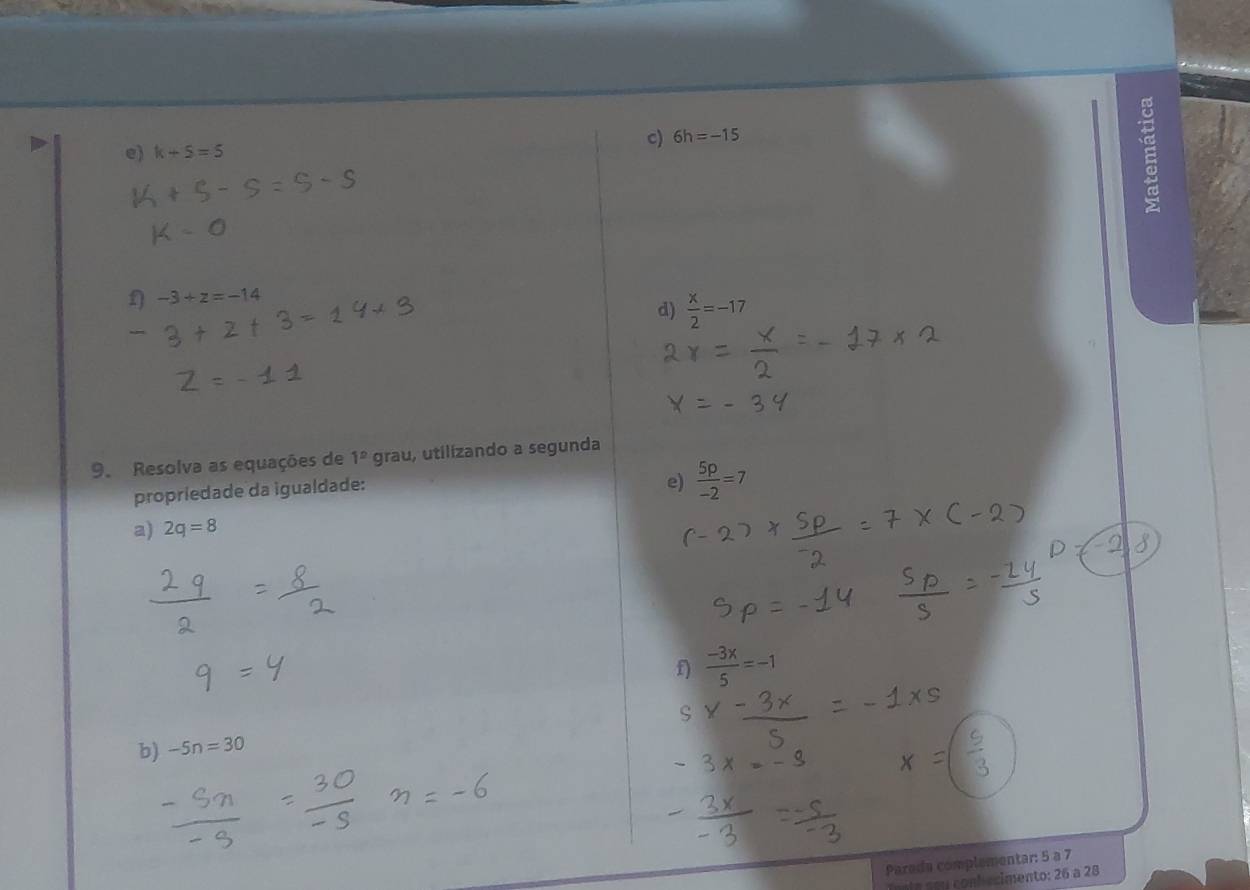 e) k + 5 = 5
K + 5 - 5 = 5 - 5
K - 0
f) -3 + z = -14
- 3 + 2 + 3 = 14 + 3
Z = -11
9. Resolva as equações de 1º grau, utilizando a segunda
propriedade da igualdade:
a) 2q = 8
2q/2 = 8/2
q = 4
b) -5n = 30
-5n/-5 = 30/-5 n = -6
c) 6h = -15
d) x/2 = -17
2x = x/2 = -17 × 2
x = -34
e) 5p/-2 = 7
(-2) × 5p/-2 = 7 × (-2)
5p = -14 5p/5 = -14/5 p = -2,8
f) -3x/5 = -1
5 × -3x/5 = -1 × 5
-3x = -5 x = 5/3
-3x/-3 = -5/-3
Matemática
Parada complementar: 5 a 7
seu conhecimento: 26 a 28